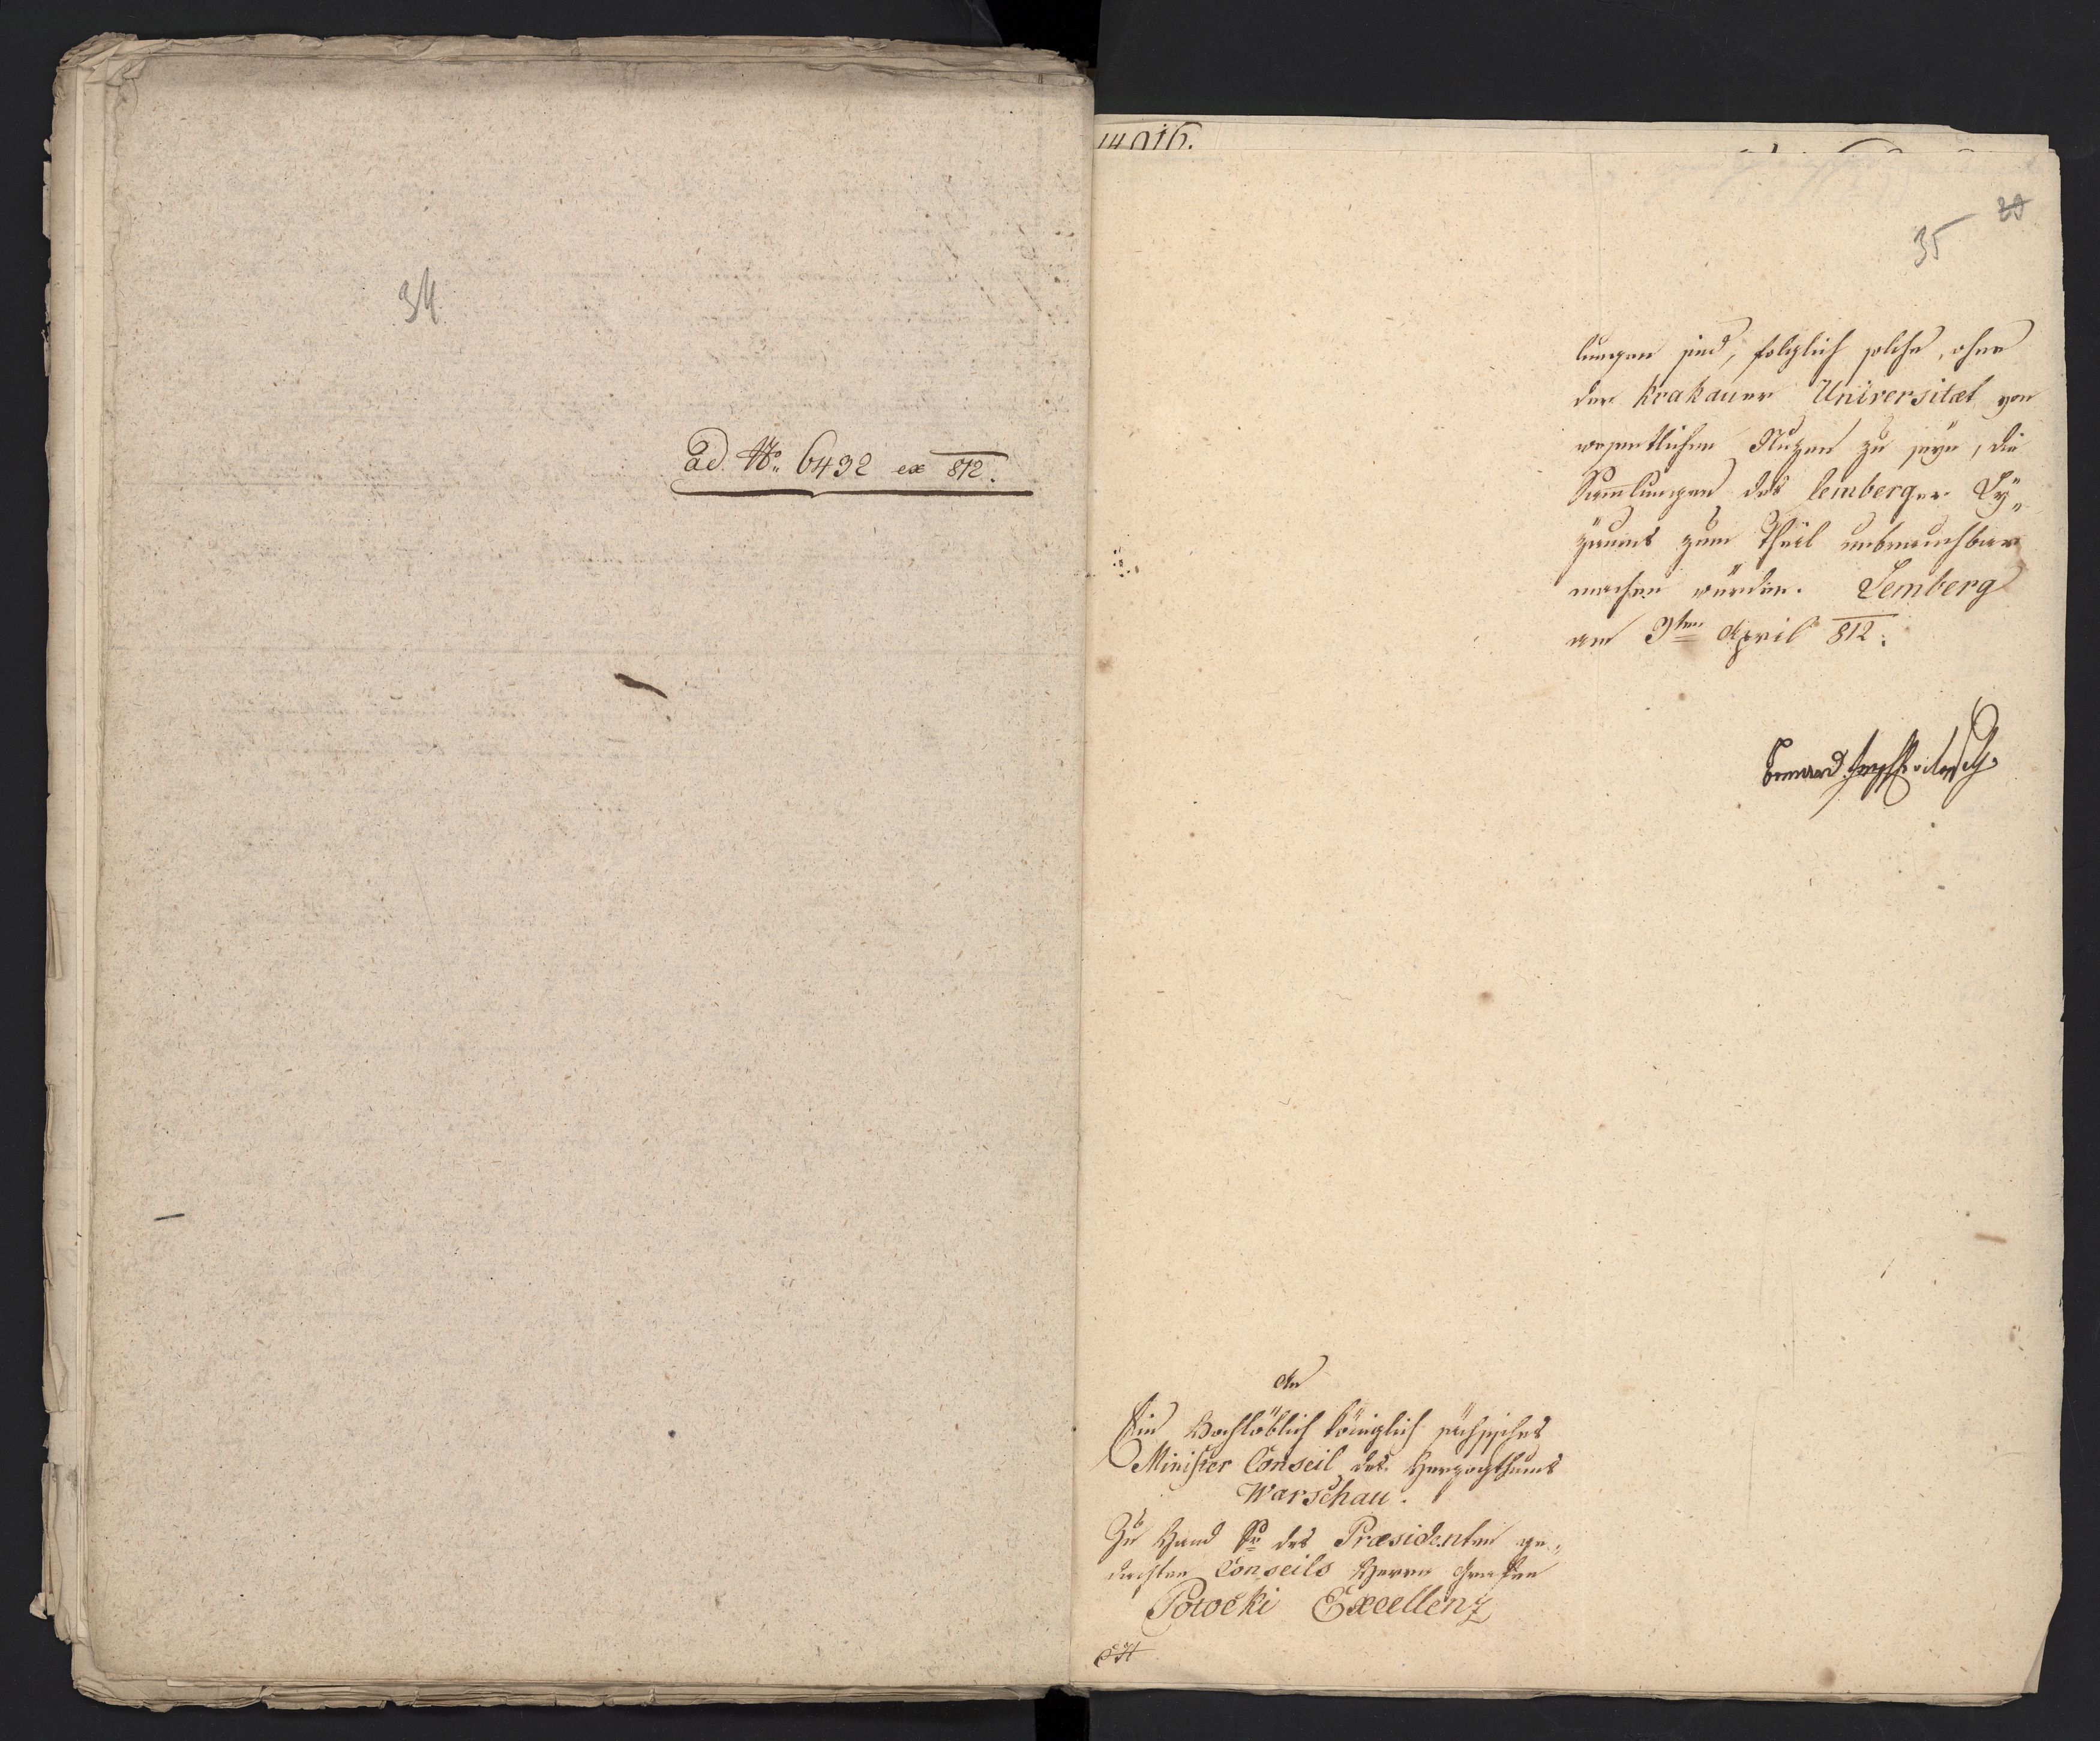 34
ad. No. 6432 ex 812.
14016.
29
35
lungen sind, folglich solche, ohne
der Krakauer Universitæt von
wesentlichen Nuzen zu seyn, die
Sammlungen des lemberger Ly„
zäums zum Theil unbrauchbar
machen würden. Lemberg
am 9ten April 812.
An
Ein Hochlöblich königlich sächsisches
Minister Conseil des Herzogthums
Warschau.
Zu Hand Sr des Præsidenten ge„
dachten Conseils Herrn Grafen
Potocki Excellenz